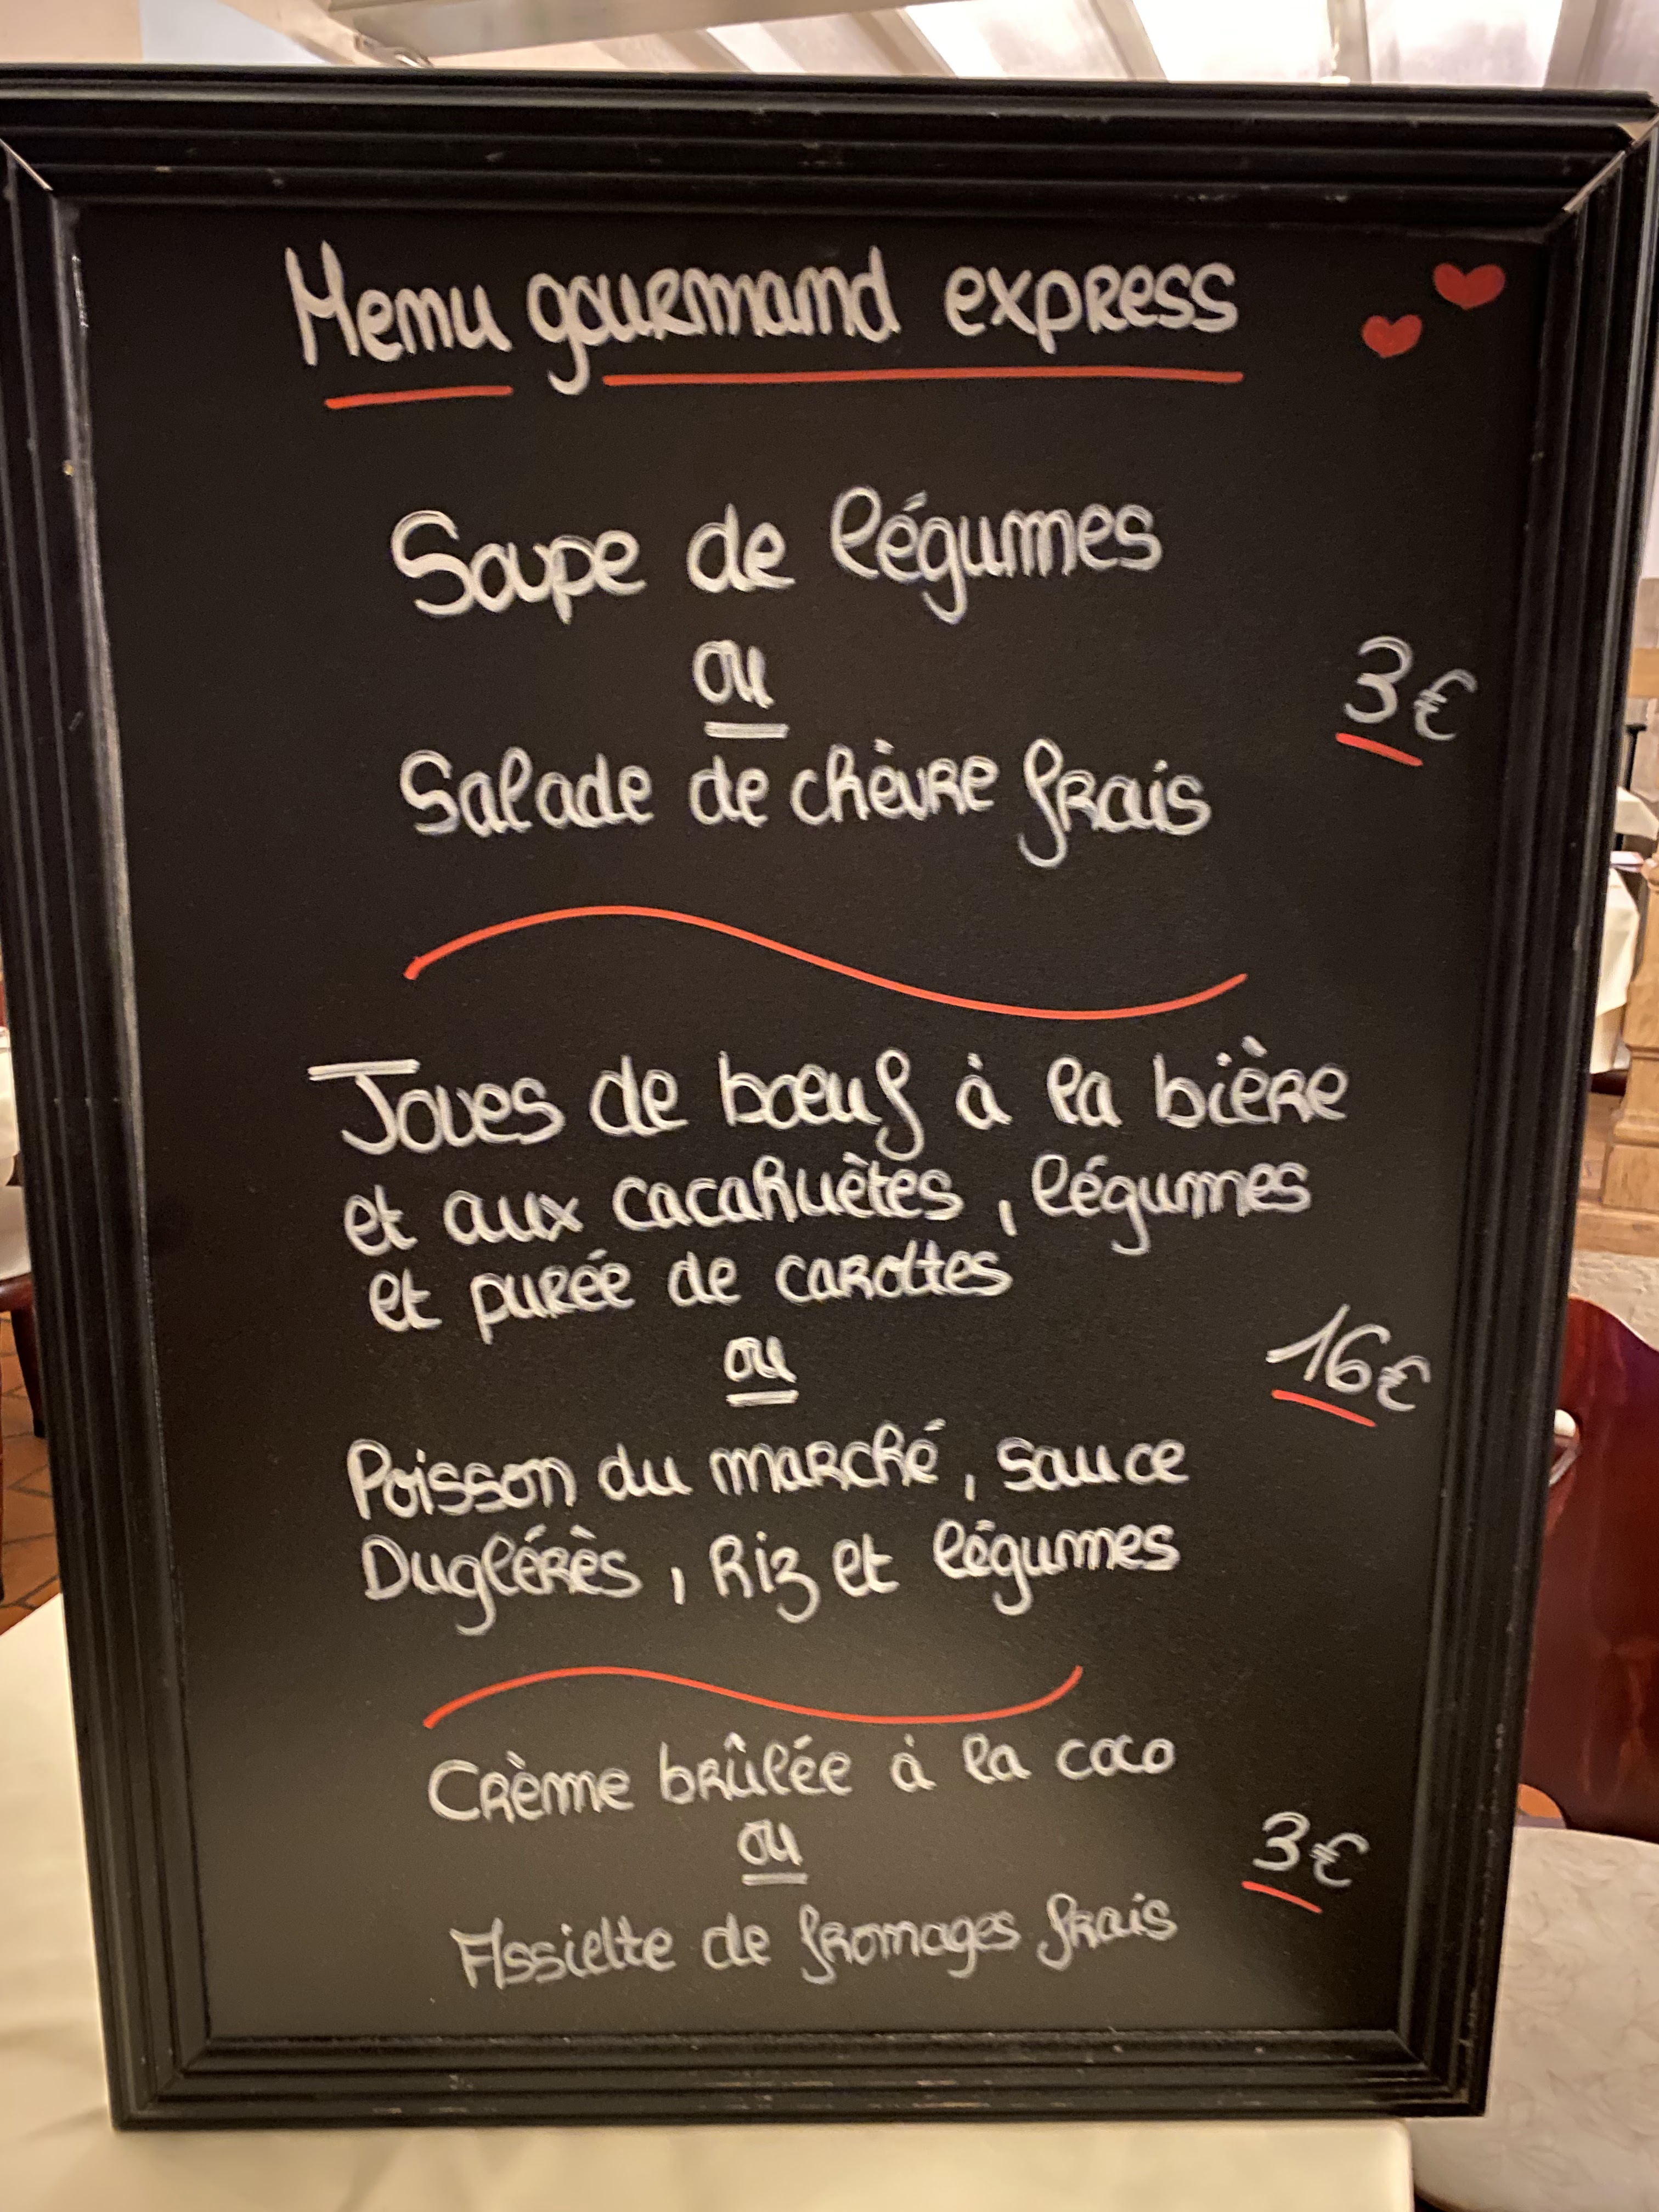 Menu gourmand express
Soupe de légumes
ou
3€
Salade de chèvre frais
Joues de bœuf à la bière
et aux cacahuètes, légumes
et purée de carottes
ou
16€
Poisson du marché, sauce
Duglérès, Riz et légumes
Crème brûlée à la coco
ou
3€
Assiette de fromages frais